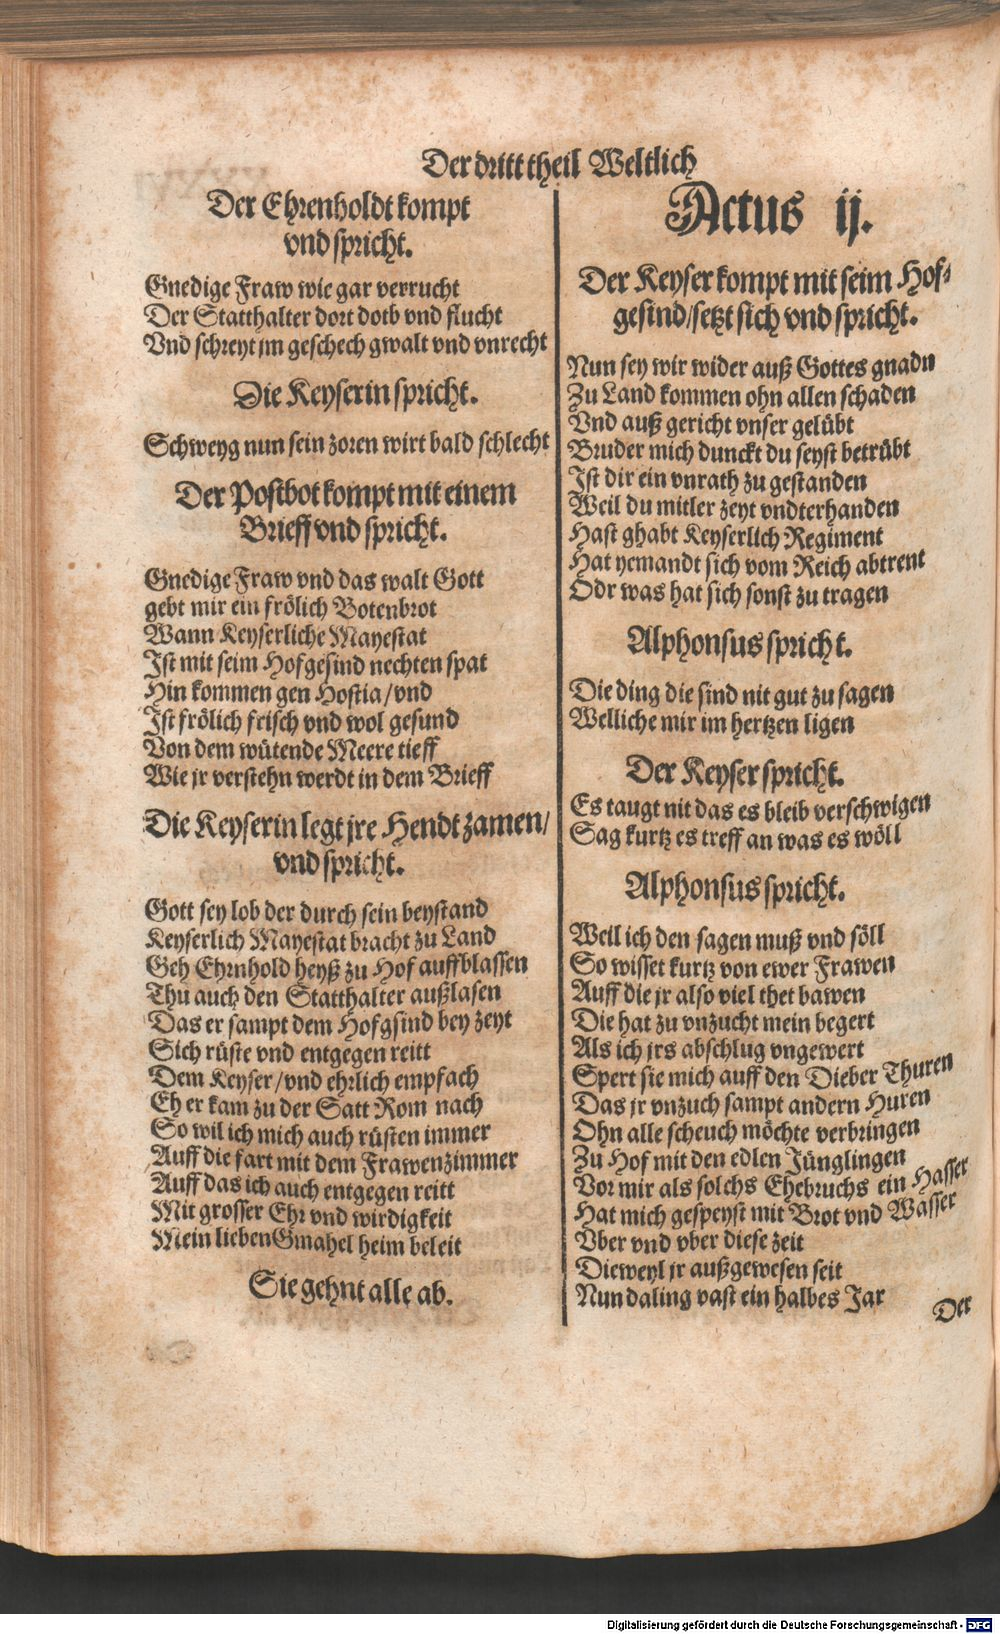 Der dritt theil Weltlich
Der Ehrenholdt kompt
vnd spricht.
Gnedige Fraw wie gar verrucht
Der Statthalter dort dobt vnd flucht
Vnd schreyt jm geschech gwalt vnd vnrecht
Die Keyserin spricht.
Schweyg nun sein zoren wirt bald schlecht
Der Postbot kompt mit einem
Brieff vnd spricht.
Gnedige Fraw vnd das walt Gott
gebt mir ein frölich Botenbrot
Wann Keyserliche Mayestat
Ist mit seim Hofgesind nechten spat
Hin kommen gen Hostia/vnd
Ist frölich frisch vnd wol gesund
Von dem wütende Meere tieff
Wie jr verstehn werdt in dem Brieff
Die Keyserin legt jre Hendt zamen/
vnd spricht.
Gott sey lob der durch sein beystand
Keyserlich Mayestat bracht zu Land
Geh Ehrnhold heyß zu Hof auffblassen
Thu auch den Statthalter außlasen
Das er sampt dem Hofgsind bey zeyt
Sich rüste vnd entgegen reitt
Dem Keyser/vnd ehrlich empfach
Eh er kam zu der Satt Rom nach
So wil ich mich auch rüsten immer
Auff die fart mit dem Frawenzimmer
Auff das ich auch entgegen reitt
Mit grosser Ehr vnd wirdigkeit
Mein lieben Gmahel heim beleit
Sie gehnt alle ab.
Actus ij.
Der Keyser kompt mit seim Hof-
gesind/setzt sich vnd spricht.
Nun sey wir wider auß Gottes gnadn
Zu Land kommen ohn allen schaden
Vnd auß gericht vnser gelübt
Bruder mich dunckt du seyst betrübt
Ist dir ein vnrath zu gestanden
Weil du mitler zeyt vndterhanden
Hast ghabt Keyserlich Regiment
Hat yemandt sich vom Reich abtrent
Odr was hat sich sonst zu tragen
Alphonsus spricht.
Die ding die sind nit gut zu sagen
Welliche mir im hertzen ligen
Der Keyser spricht.
Es taugt nit das es bleib verschwigen
Sag kurtz es treff an was es wöll
Alphonsus spricht.
Weil ich den sagen muß vnd söll
So wisset kurtz von ewer Frawen
Auff die jr also viel thet bawen
Die hat zu vnzucht mein begert
Als ich jrs abschlug vngewert
Spert sie mich auff den Dieber Thuren
Das jr vnzuch sampt andern Huren
Ohn alle scheuch möchte verbringen
Zu Hof mit den edlen Jünglingen
Vor mir als solchs Ehebruchs ein Hasser
Hat mich gespeyst mit Brot vnd Wasser
Vber vnd vber diese zeit
Dieweyl jr außgewesen seit
Nun daling vast ein halbes Jar
Der
Digitalisierung gefördert durch die Deutsche Forschungsgemeinschaft - DFG